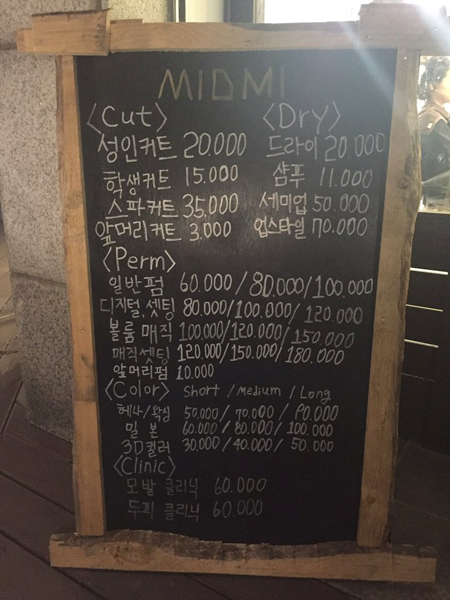 MIDMI
<Cut> <Dry>
성인커트 20.000 드라이 20.000
학생커트 15.000 샴푸 11.000
스파커트 35,000 세미업 50.000
앞머리커트 3,000 업스타일 70.000
<Perm>
일반펌 60.000 / 80.000 / 100.000
디지털,셋팅 80.000 / 100.000 / 120.000
볼륨매직 100.000 / 120.000 / 150.000
매직셋팅 120.000 / 150.000 / 180.000
앞머리펌 10.000
<Color> Short / Medium / Long
헤나/왁싱 50.000 / 70.000 / 90.000
밀본 60.000 / 80.000 / 100.000
3D컬러 30.000 / 40.000 / 50.000
<Clinic>
모발 클리닉 60.000
두피 클리닉 60.000